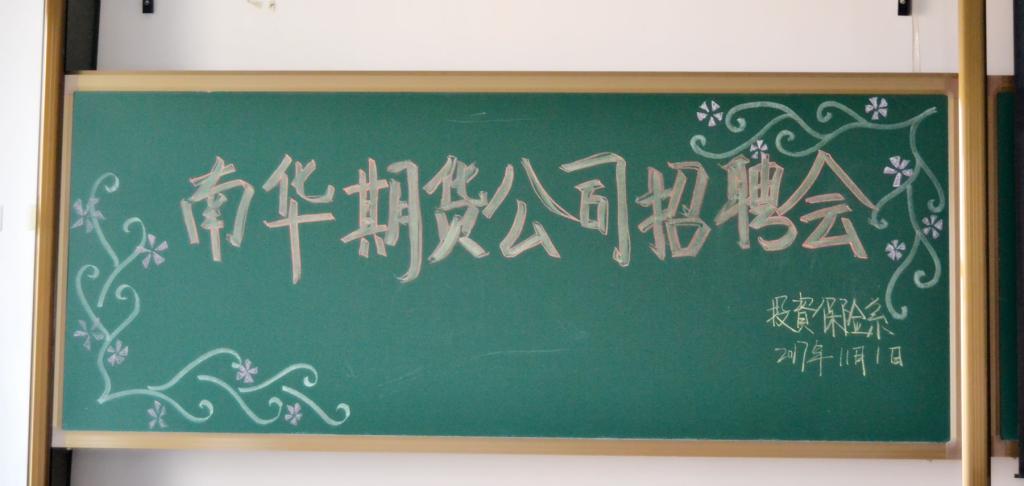 南华期货公司招聘会
投資保险系
2017年11月1日